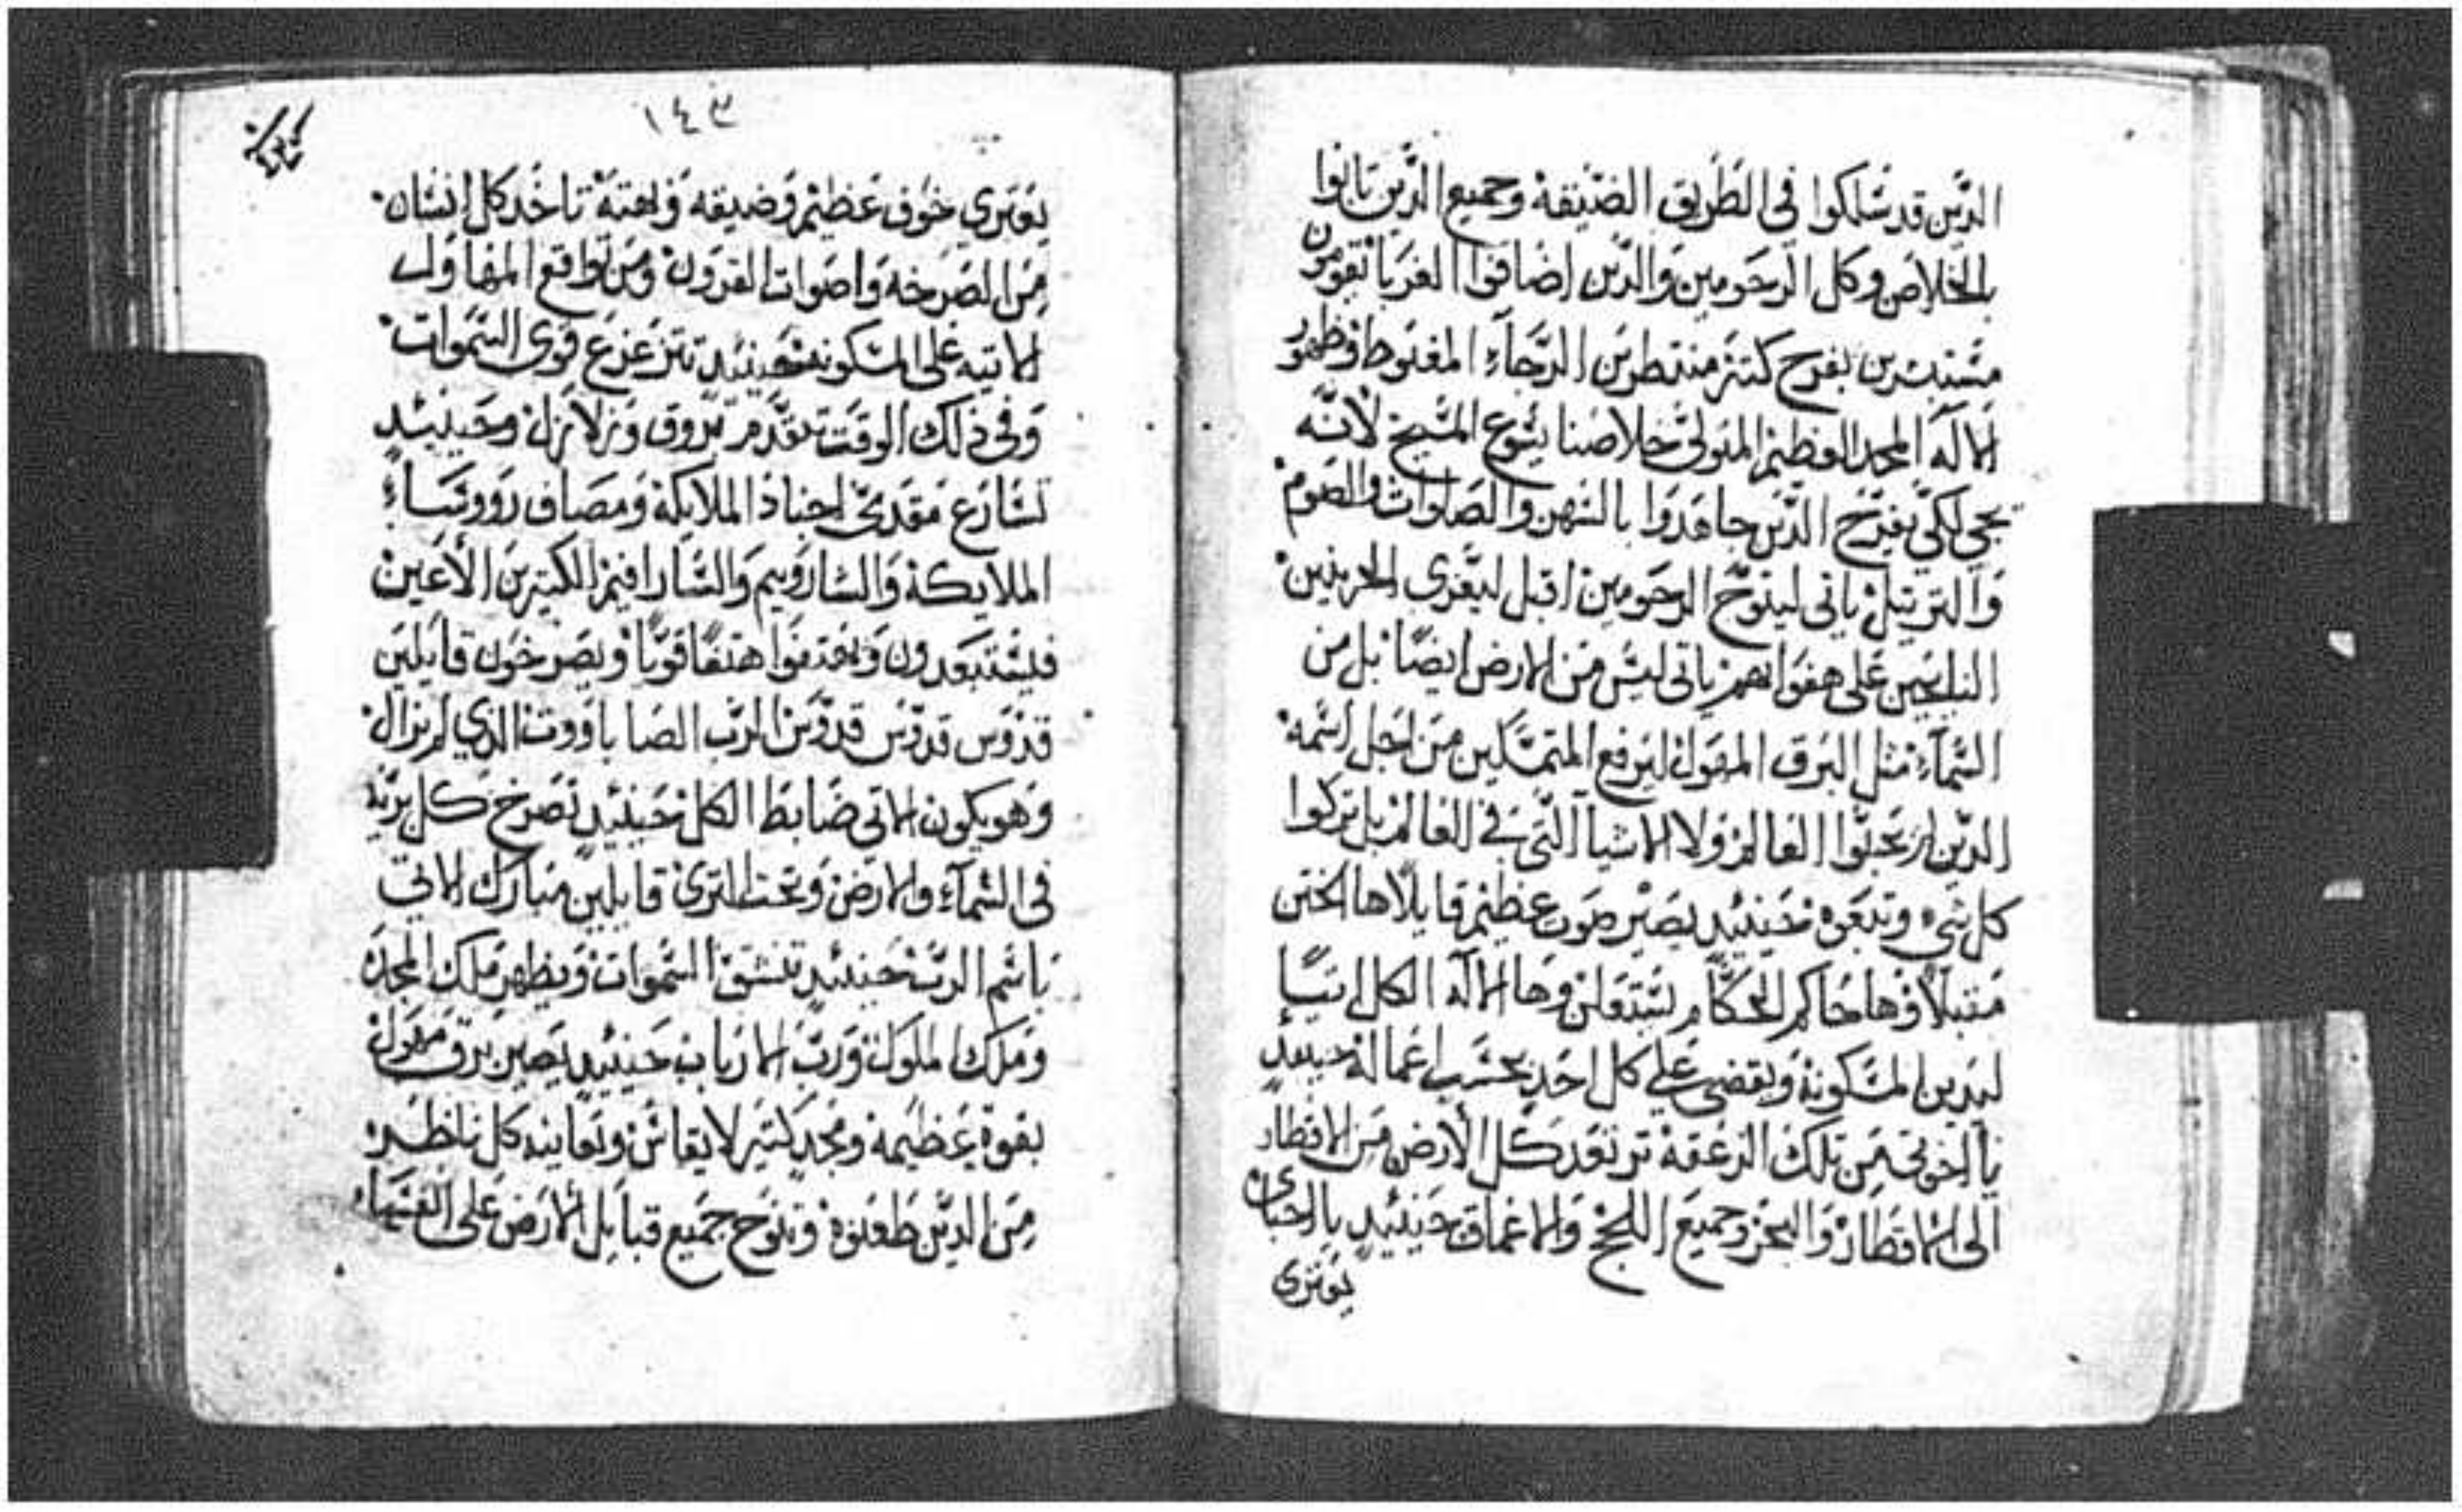 الدين قد سلكوا في الطريق الضيقة وجميع الدين تابوا
بالخلاص وكل الرحومين والدين اضافوا الغربا تقومون
مستبشرين بفرح كتير منتطرين الرجاء المغبوط وظهور
الاله المجد العظيم المتولي خلاصنا يسوع المسيح لانه
يجي لكي يفرح الدين جاهدوا بالسهر والصلوات والصوم
والترتيل ياتي ليتوج الرحومين اقبل ليعزي الحزينين
على هفواتهم ياتي ليس من الارض ايضا بل من
السماء مثل البرق المهول ليرفع المتمسكين من اجل اسمه
الدين لم يحبوا العالم ولا الاشيا التي في العالم بل تركوا
كل شي وتبعوه حينيد يصير صوت عظيم قايلا ها الختن
مقبلا وها حاكم الحكام وها الاله الكل
ليدين المسكونة ويقضي على كل احد بحسب اعماله حينيد
يا اخوتي من تلك الزعقة ترتعد كل الارض من الاقطار
الى الاقطار والبحر وجميع اللجج والاعماق حينيد يا احباي
يوتري
١٤٣
يوتري خوف عظيم وضيقه وبهتة تاخد كل انسان
من الصرخه واصوات القرون ومن تواقع المهاول
الاتيه على المسكونة حينيد تتزعزع قوى السموات
وفي ذلك الوقت تتقدم بروق وزلازل وحينيد
تسارع مقدمي اجناد الملايكة ومصاف رووساء
الملايكة والشاروبيم والسارافيم الكتيرين الاعين
ويهتفوا هتفا قويا ويصرخون قايلين
قدوس قدوس قدوس الرب الصاباووت الدي لم يزال
وهو يكون الاتي ضابط الكل حينيد تصرخ كل برية
في السماء والارض وتحت الترى قايلين مبارك الاتي
باسم الرب حينيد تنشق السموات ويظهر ملك المجد
وملك الملوك ورب الارباب حينيد يصير برق مهول
بقوة عظيمة ومجد كتير لا يقاس وتعاينه كل ناظر
من الدين طعنوه وتنوح جميع قبايل الارض على انفسها